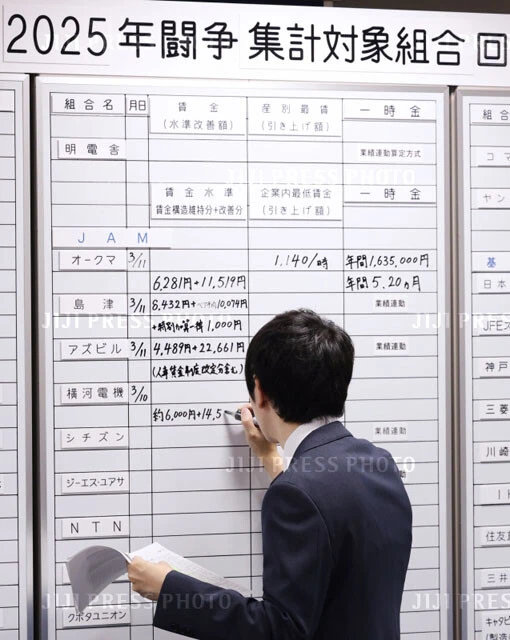 2025年闘争 集計対象組合 回
組合名 月日 賃金 産別最賃 一時金
(水準改善額) (引き上げ額)
明電舎 業績連動算定方式
賃金水準 企業内最低賃金 一時金
賃金構造維持分+改善分 (引き上げ額)
JAM
オークマ 3/11 1,140/時 年間1,635,000円
6,281円+11,519円 年間5.20ヵ月
島津 3/11 8,432円+ 10,074円 業績連動
1,000円
アズビル 3/11 4,489円+22,661円 業績連動
(人事賃金制度改定分含む)
横河電機 3/10
約6,000円+14,5
シチズン 業績連動
ジーエス・ユアサ
NTN
クボタユニオン
組合
コマ
ヤン
基
日本
JFEス
神戸
三菱
川崎
I
住友
三井
キャタピ
(製造
JIJI PRESS PHOTO
JIJI PRESS PHOTO
JIJI PRESS PHOTO
JIJI PRESS PHOTO
JIJI PRESS PHOTO
JIJI PRESS PHOTO
JIJI PRESS PHOTO